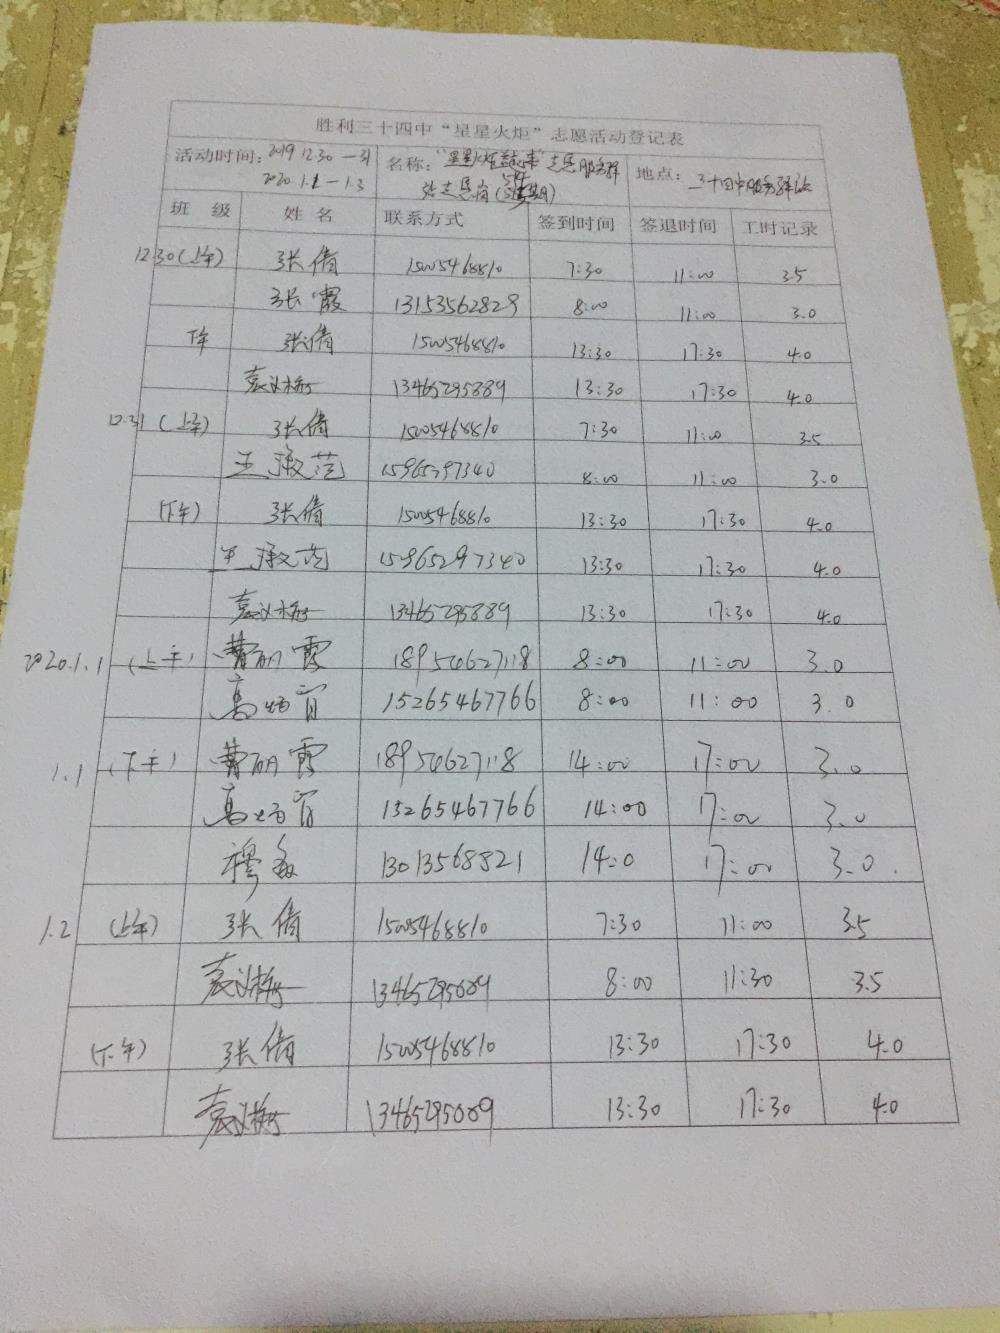 胜利三十四中“星星火炬”志愿活动登记表
活动时间：2019 12.30 — 31 名称： 志愿服务 地点：三十四中服务驿站
2020.1.1 — 1.3 站志愿岗
班 级 姓 名 联系方式 签到时间 签退时间 工时记录
12.30(上午) 张倩 15005468810 7:30 11:00 3.5
张霞 13153562829 8:00 11:00 3.0
下午 张倩 15005468810 13:30 17:30 4.0
袁义梅 13465295889 13:30 17:30 4.0
12.31 (上午) 张倩 15005468810 7:30 11:00 3.5
王淑范 15965297340 8:00 11:00 3.0
(下午) 张倩 15005468810 13:30 17:30 4.0
王淑范 15965297340 13:30 17:30 4.0
袁义梅 13465295889 13:30 17:30 4.0
2020.1.1 (上午) 费丽霞 18954627118 8:00 11:00 3.0
高 15265467766 8:00 11:00 3.0
1.1 (下午) 费丽霞 18954627118 14:00 17:00 3.0
高 15265467766 14:00 17:00 3.0
穆 13013568821 14:0 17:00 3.0.
1.2 (上午) 张倩 15005468810 7:30 11:00 3.5
袁义梅 13465295889 8:00 11:30 3.5
(下午) 张倩 15005468810 13:30 17:30 4.0
袁义梅 13465295889 13:30 17:30 4.0